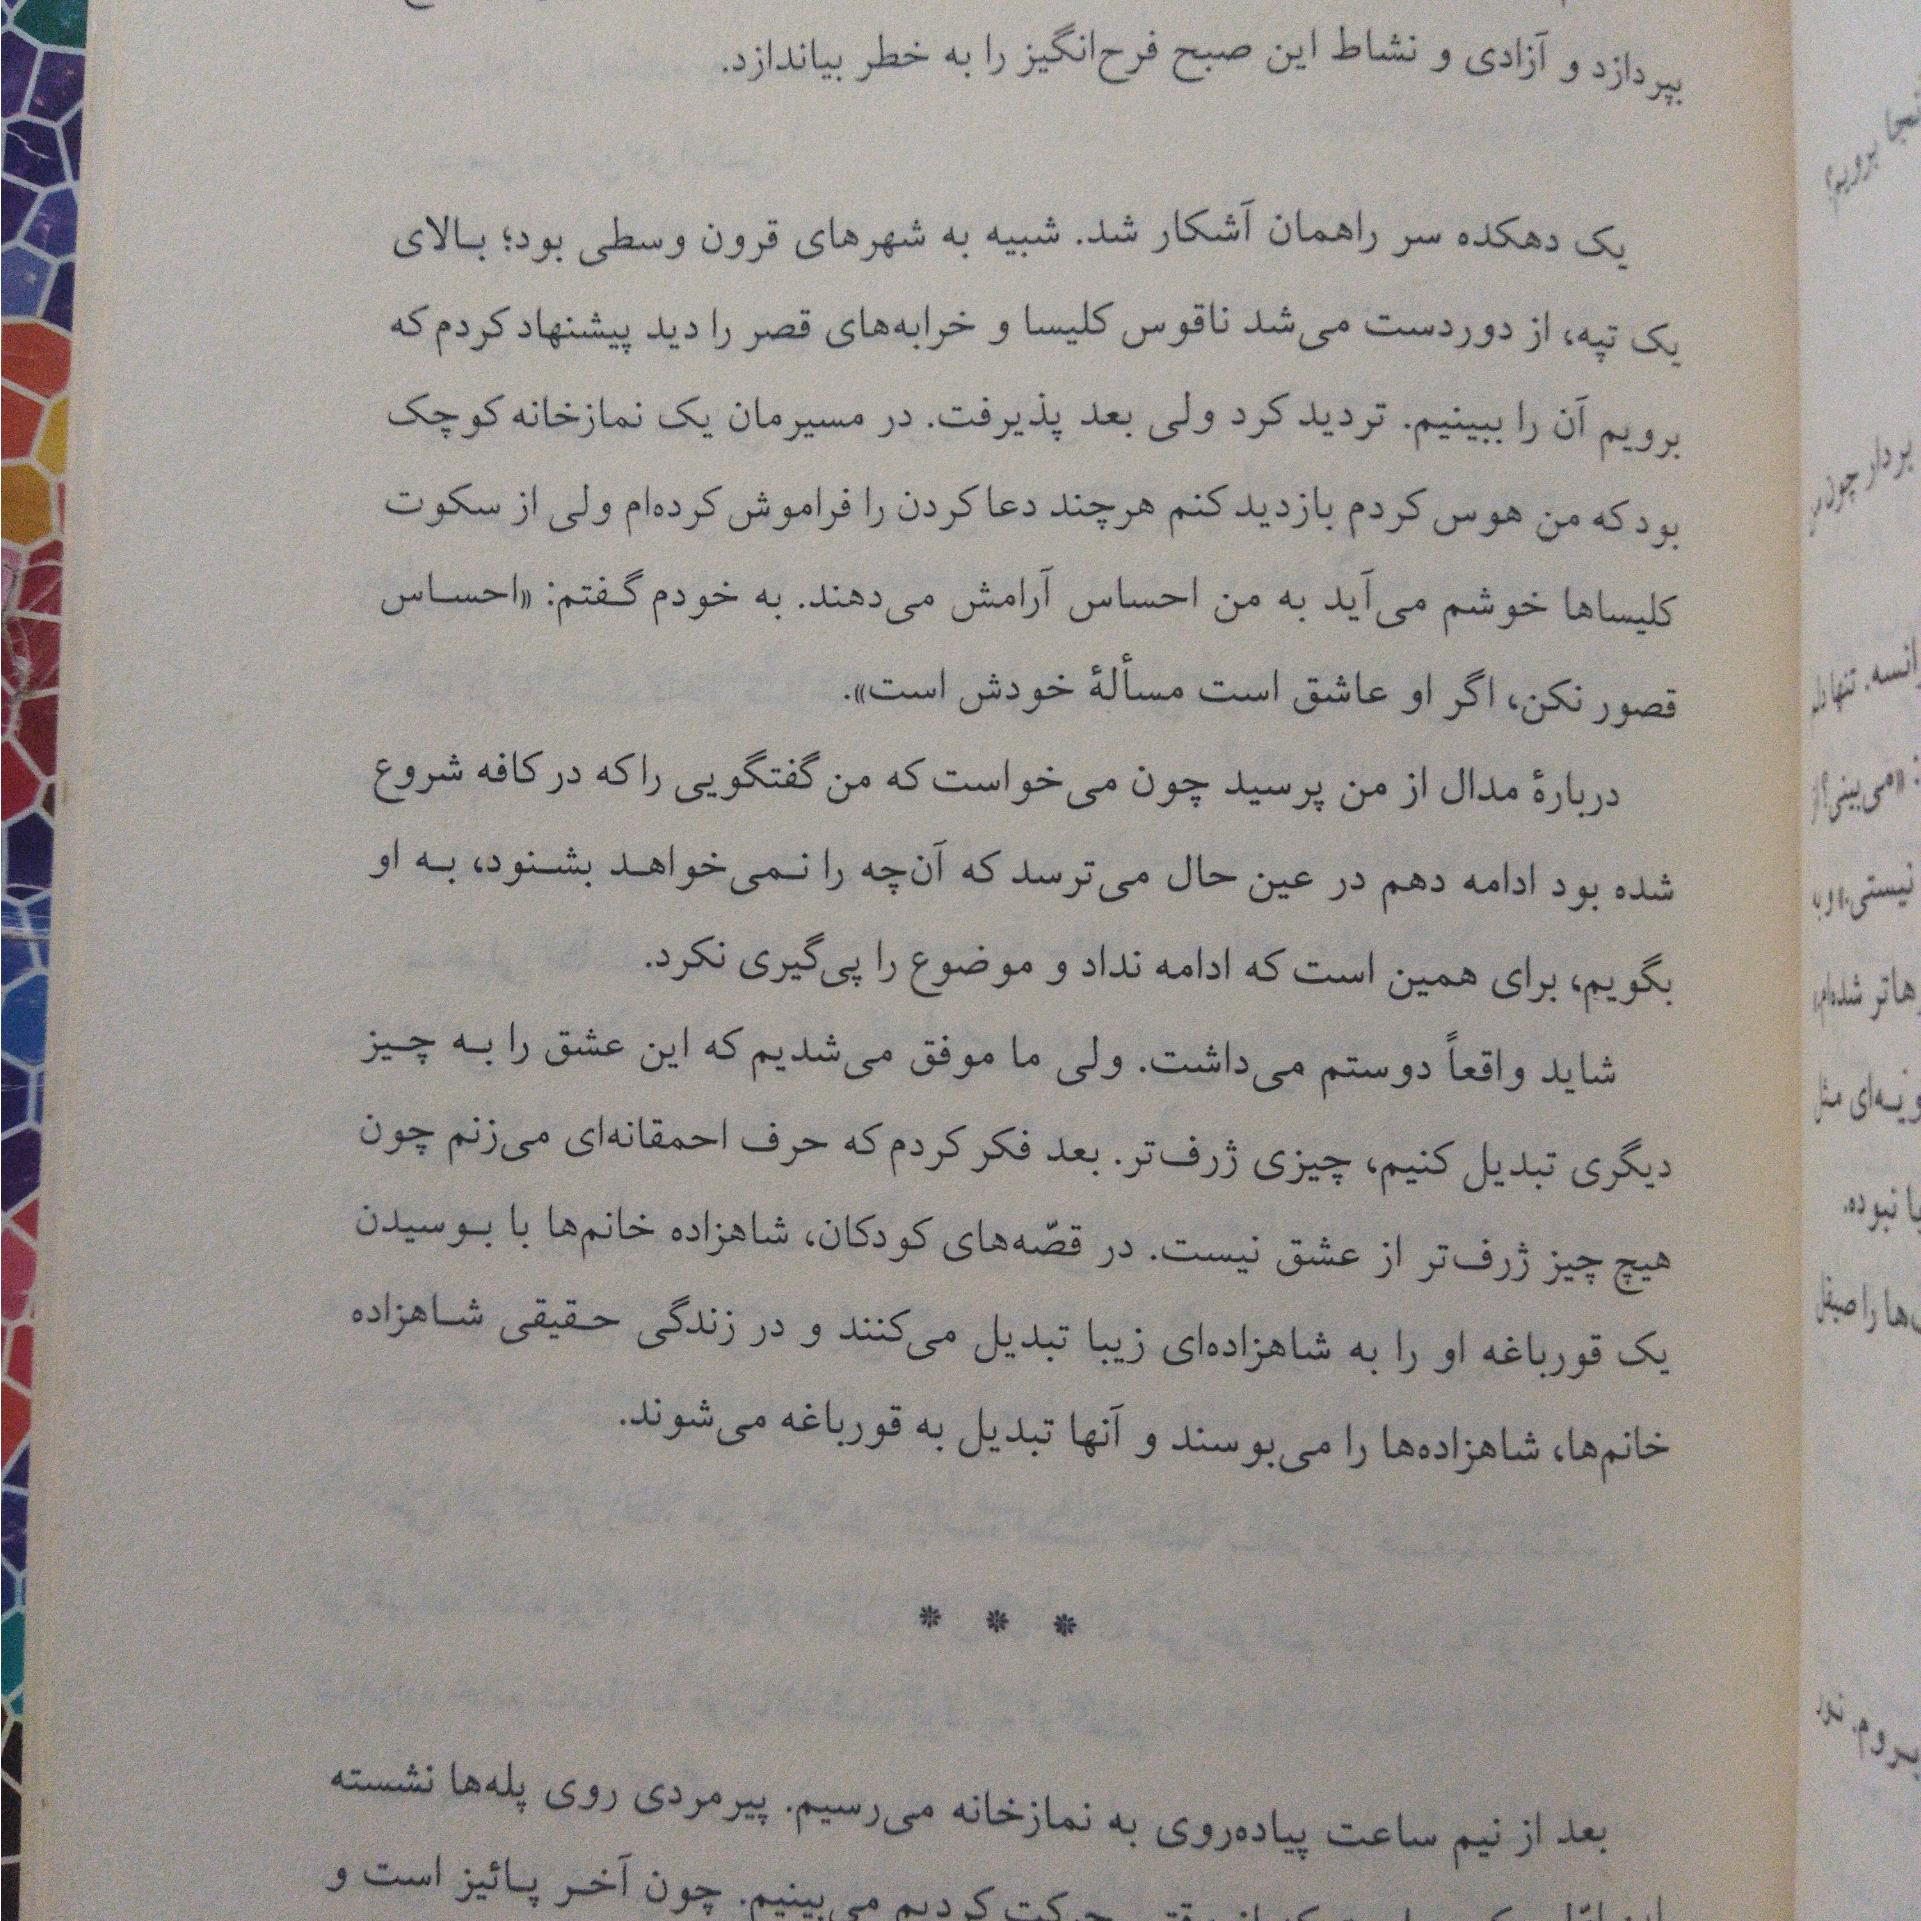 بپردازد و آزادی و نشاط این صبح فرح‌انگیز را به خطر بیاندازد.
یک دهکده سر راهمان آشکار شد. شبیه به شهرهای قرون وسطی بود؛ بالای
یک تپه، از دوردست می‌شد ناقوس کلیسا و خرابه‌های قصر را دید پیشنهاد کردم که
برویم آن را ببینیم. تردید کرد ولی بعد پذیرفت. در مسیرمان یک نمازخانه کوچک
بود که من هوس کردم بازدید کنم هرچند دعا کردن را فراموش کرده‌ام ولی از سکوت
کلیساها خوشم می‌آید به من احساس آرامش می‌دهند. به خودم گفتم: «احساس
قصور نکن، اگر او عاشق است مسألهٔ خودش است».
دربارهٔ مدال از من پرسید چون می‌خواست که من گفتگویی را که در کافه شروع
شده بود ادامه دهم در عین حال می‌ترسد که آن‌چه را نمی‌خواهد بشنود، به او
بگویم، برای همین است که ادامه نداد و موضوع را پی‌گیری نکرد.
شاید واقعاً دوستم می‌داشت. ولی ما موفق می‌شدیم که این عشق را به چیز
دیگری تبدیل کنیم، چیزی ژرف‌تر. بعد فکر کردم که حرف احمقانه‌ای می‌زنم چون
هیچ چیز ژرف‌تر از عشق نیست. در قصّه‌های کودکان، شاهزاده خانم‌ها با بوسیدن
یک قورباغه او را به شاهزاده‌ای زیبا تبدیل می‌کنند و در زندگی حقیقی شاهزاده
خانم‌ها، شاهزاده‌ها را می‌بوسند و آنها تبدیل به قورباغه می‌شوند.
* * *
بعد از نیم ساعت پیاده‌روی به نمازخانه می‌رسیم. پیرمردی روی پله‌ها نشسته
حرکت کردیم می‌بینیم. چون آخر پائیز است و
نجا برویم؟
بردار چون
انسه. تنها
: «می‌بینی؟
نیستی.» و
هاتر شده‌ام،
ویه‌ای مثل
با نبوده.
‌ها را صیقل